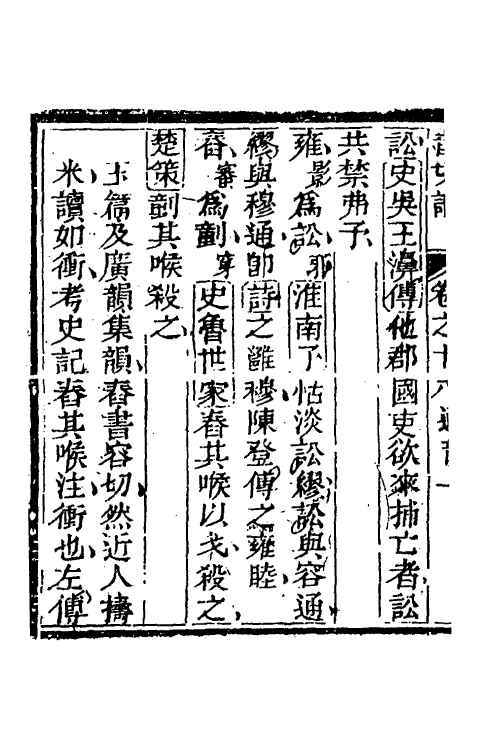 卷之十八通音一
訟史吳王濞傳他郡國吏欲來捕亡者訟
共禁弗予
雍影爲訟邪淮南子恬淡訟繆訟與容通
繆與穆通卽詩之雝穆陳登傳之雍睦
舂審爲劃穿史魯世家舂其喉以戈殺之
楚策劃其喉殺之
玉篇及廣韻集韻舂書容切然近人擣
米讀如衝考史記舂其喉注衝也左傳